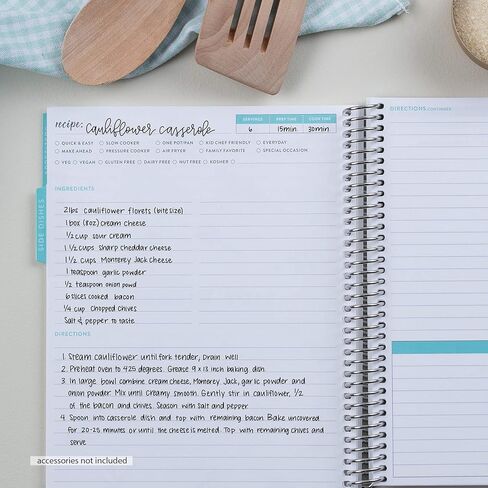 recipe: Cauliflower Casserole
SERVINGS PREP TIME COOK TIME
6 15min 30min
QUICK & EASY SLOW COOKER ONE POT/PAN KID CHEF FRIENDLY EVERYDAY
MAKE AHEAD PRESSURE COOKER AIR FRYER FAMILY FAVORITE SPECIAL OCCASION
VEG VEGAN GLUTEN FREE DAIRY FREE NUT FREE KOSHER
SIDE DISHES
INGREDIENTS
2 lbs cauliflower florets (bite size)
1 box (8oz) cream cheese
1/2 cup sour cream
1 1/2 cups sharp cheddar cheese
1 1/2 cups Monterey Jack cheese
1 teaspoon garlic powder
1/2 teaspoon onion powd
6 slices cooked bacon
1/4 cup chopped chives
Salt & pepper to taste
DIRECTIONS
1. Steam cauliflower until fork tender, drain well
2. Preheat oven to 425 degrees. Grease 9 x 13 inch baking dish.
3. In large bowl combine cream cheese, Monterey Jack, garlic powder and
onion powder. Mix until creamy smooth. Gently stir in cauliflower, 1/2
of the bacon and chives. Season with salt and pepper.
4. Spoon into casserole dish and top with remaining bacon. Bake uncovered
for 20-25 minutes or until the cheese is melted. Top with remaining chives and
serve
DIRECTIONS CONTINUED
accessories not included